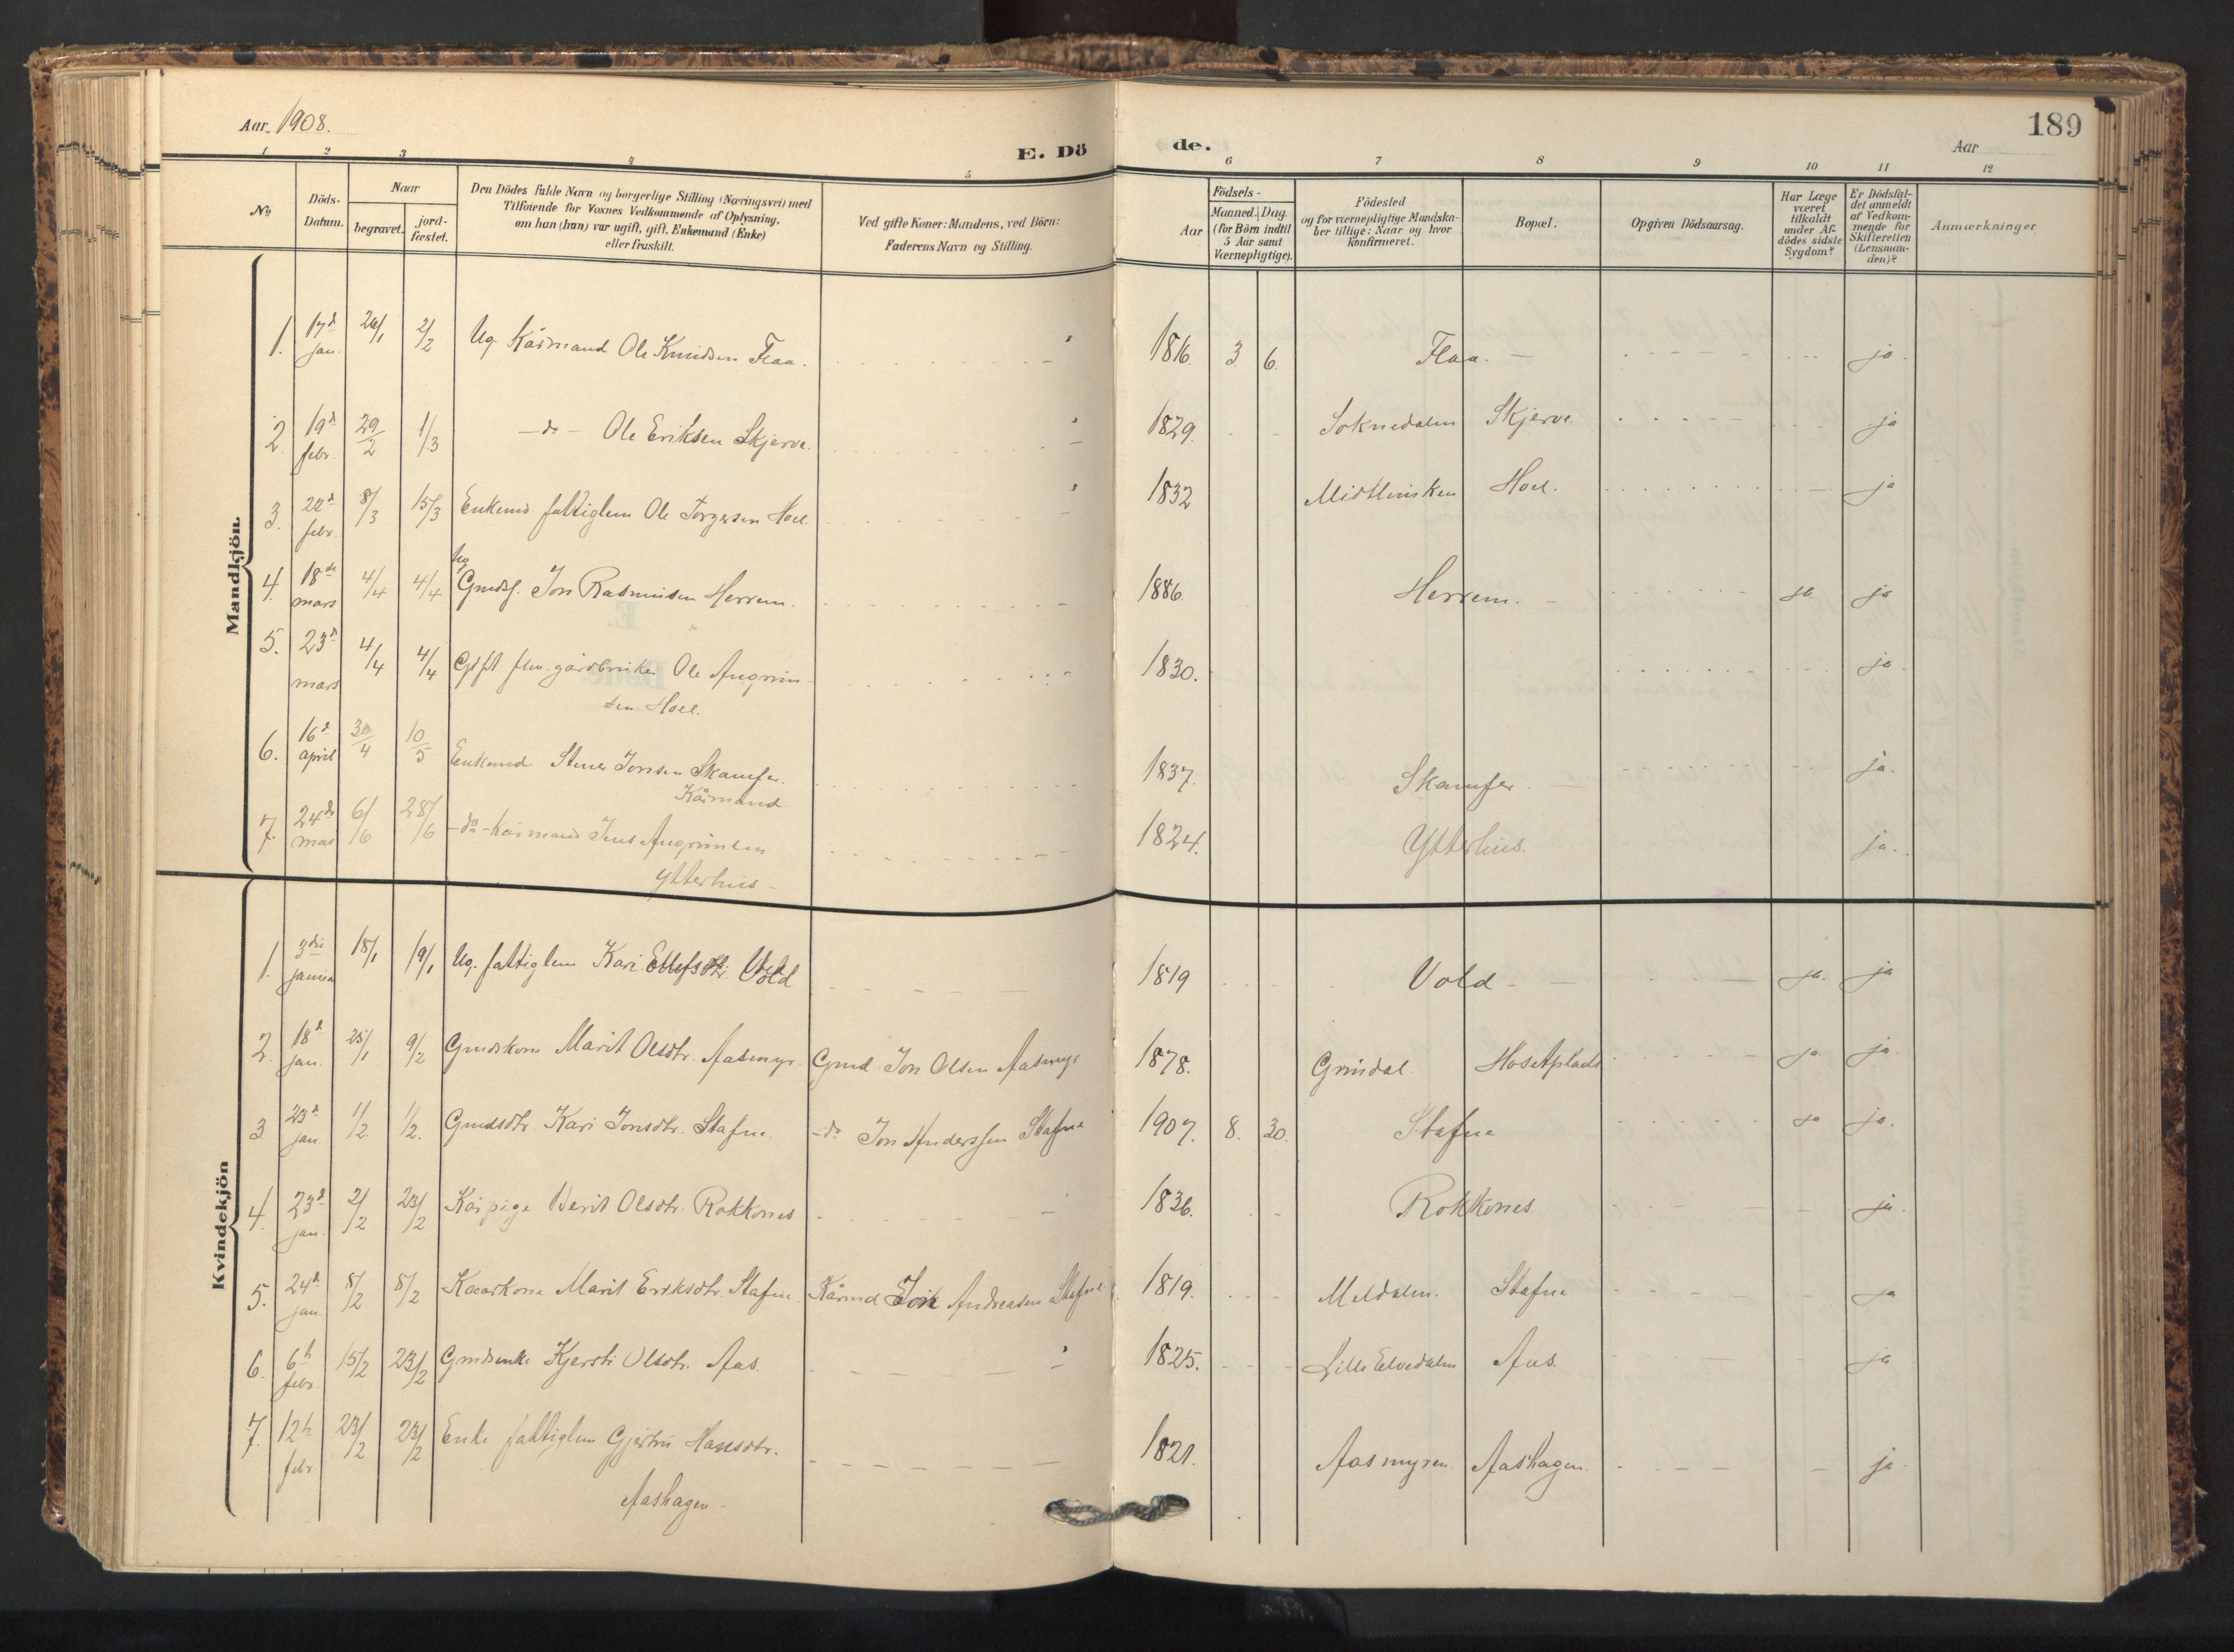 Aar. 1908.
E. Dö
de.
189
Aar
1 2 3 4 5 6 7 8 9 10 11 12
No
Döds-Datum.
Naar
begravet.
jord-fæstet.
Den Dödes fulde Navn og borgerlige Stilling (Næringsvei) med
Tilföiende for Voxnes Vedkommende af Oplysning,
om han (hun) var ugift, gift, Enkemand (Enke)
eller fraskilt.
Ved gifte Koner: Mandens, ved Börn:
Faderens Navn og Stilling.
Aar
Födsels-
Maaned. Dag.
(for Börn indtil
5 Aar samt
Værnepligtige).
Födested
og for værnepligtige Mandska-
ber tillige: Naar og hvor
konfirmeret.
Bopæl.
Opgiven Dödsaarsag.
Har Læge
været
tilkaldt
under Af-
dödes sidste
Sygdom?
Er Dödsfal-
det anmeldt
af Vedkom-
mende for
Skifteretten
(Lensman-
den)?
Anmærkninger
Mandkjön.
1. 17d jan. 26/1 2/2 Ug. Kårmand Ole Knudsen Flaa. 1816. 3. 6. Flaa. — ja.
2. 19d febr. 29/2 1/3 —do— Ole Eriksen Skjerve. 1829. Soknedalen Skjerve. ja
3. 22d febr. 8/3 15/3 Enkemd. fattiglem Ole Torgersen Hoel. 1832 Hoel. ja
4. 18de mars 4/4 4/4 Ug Gmds. Jon Rasmusen Herrem. 1886. Herrem. — ja. ja
5. 23d mars 4/4 4/4 Gift flw. gårdbruker Ole Angrim-
sen Hoel. 1830. ja.
6. 16d april 30/4 10/5 Enkemd Stener Jonsen Skamfer.
Kårmand 1837. Skamfer. — ja.
7. 24de mai 6/6 28/6 —do— kårmand Jens Angrimsen
Ytterhus — 1824. Ytterhus. ja.
Kvindekjön
1. 3die januar 18/1 19/1 Ug. fattiglem Kari Ellefsdtr. Vold 1819 Vold — ja. ja
2. 18d jan. 25/1 9/2 Gmdskone Marit Olsdtr. Aasmyr. Gmd. Jon Olsen Aasmyr 1878. Grindal. Hosetplads ja ja.
3. 23d jan. 1/2 1/2. Gmdsdtr. Kari Jonsdtr. Stafne. —do Jon Anderssen Stafne 1907. 8. 30. Stafne ja ja.
4. 23d jan. 2/2 23/2 Kårpige Berit Olsdtr. Rokkones 1836. Rokkones. ja.
5. 24d jan. 8/2 8/2 Kaarkone Marit Eriksdtr. Stafne. Kårmd Andreasen Stafne. 1819. Meldalen. Stafne ja
6. 6te febr. 15/2 23/2 Gmdsenke Kjersti Olsdtr. Aas. 1825. Lille Elvedalen Aas. ja
7. 12te febr. 23/2 23/2 Enke fattiglem Gjertru Hansdtr.
Aashagen — 1821. Aasmyren. Aashagen. ja